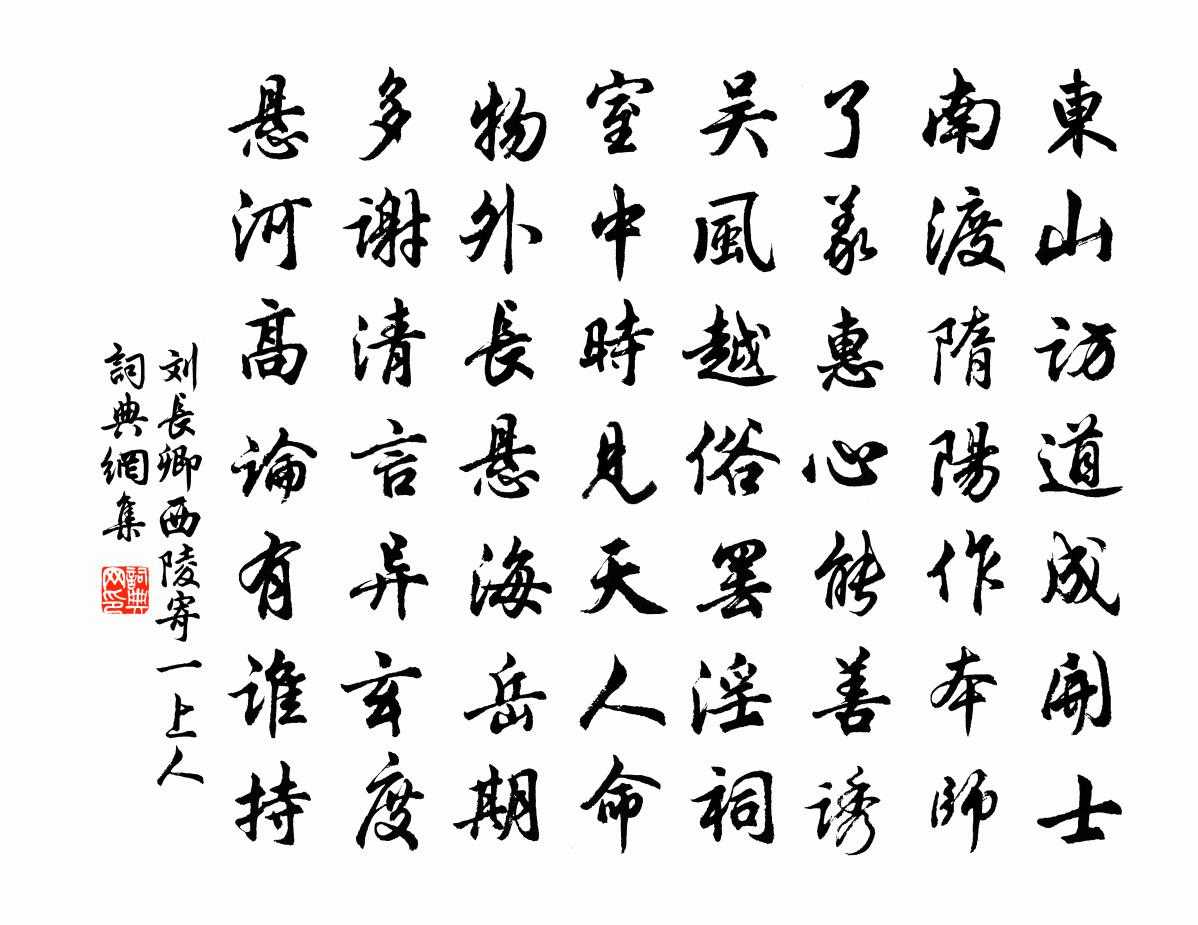 東山訪道成開士
南渡隋陽作本師
了義惠心能善誘
吴風越俗罢淫祠
室中時見天人命
物外長悬海岳期
多謝清言异玄度
悬河高論有誰持
刘長卿西陵寄一上人
詞典網集
詞典网印